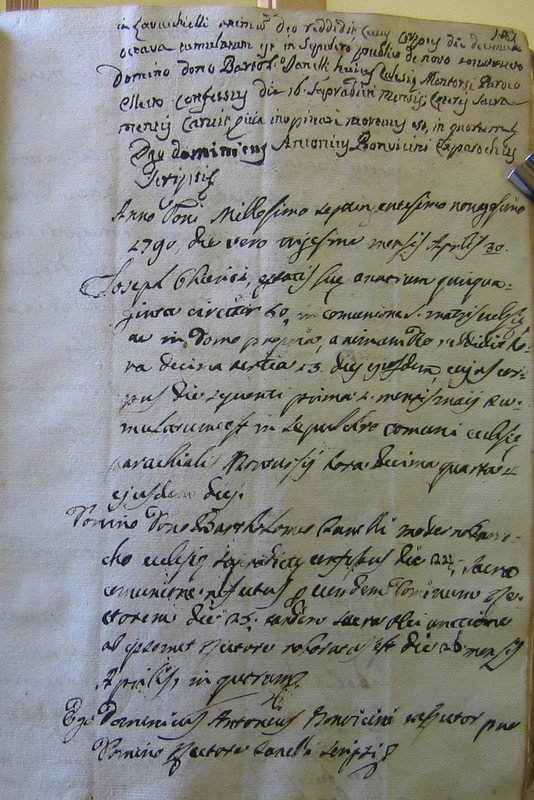 in animus Deo reddidit cuius corpus die decima
octava tumulatum est in sepulcro publico de novo
Domino Dono Barthol. Zanelli huius Eclesię Paroco
Electo confessus die 16 supradicti mensis, Sacra
mentis caruit quia inopinate est, in quorum
Ego Dominicus Antonius Bonvicini
scripsi
Anno Dni Millesimo septingentesimo nonagesimo
1790, die vero trigesima mensis Aprilis 30.
Joseph etatis suę annorum quinqua-
ginta circiter 50, in comunione S. matris eclesię
ac in domo propria, animam Deo reddidit ho-
ra decima tertia 13 diei ejusdem, cujus cor-
pus die sequenti prima 1 mensis maij tu-
mulatum est in sepulchro comuni eclesię
parochiali hora decima quarta
ejusdem diej.
Domino Dono Bartholomeo Zanelli moderno Paro-
cho eclesię supradictę confessus die 22, sacra
comunione refectus p eundem Dominum Re-
ctorem die 25. tandem sacra olei unctione
ab Rectore roboratus est die 26 mensis
Aprilis, in quorum
Ego Dominicus Antonius Bonvicini pro
Domino Rectore Zanelli scripsi